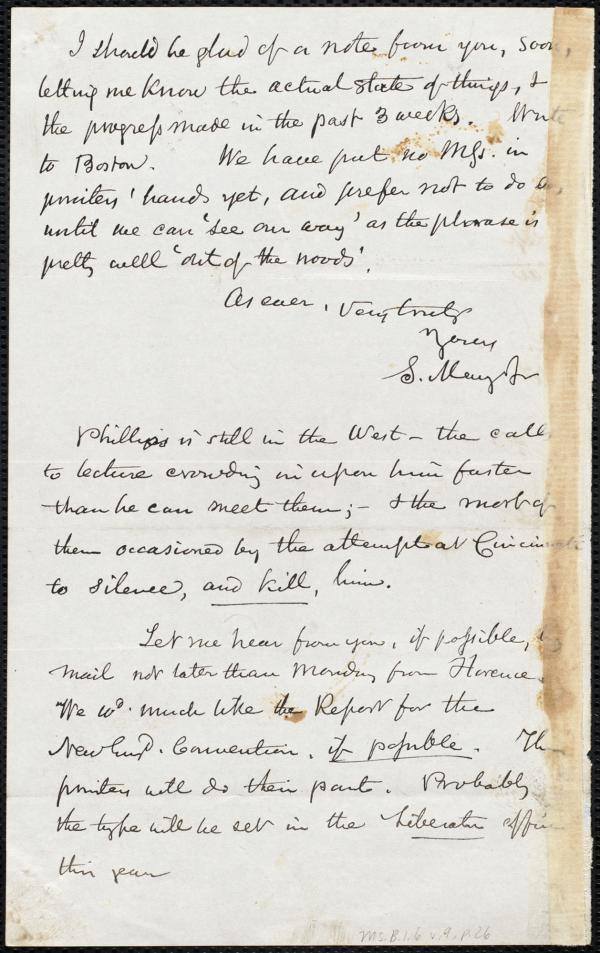 I should be glad of a note from you, soon,
letting me know the actual state of things, &
the progress made in the past 3 weeks. Write
to Boston. We have put no MSS. in
printers' hands yet, and prefer not to do so,
until we can 'see our way' as the phrase is
pretty well 'out of the woods'.
As ever, Very truly
Yours
S. May, Jr
Phillips is still in the West - the calls
to lecture crowding in upon him faster
than he can meet them; - & the most of
them occasioned by the attempt at Cincinnati
to silence, and kill, him.
Let me hear from you, if possible, by
mail not later than Monday from Florence.
We wd. much like the Report for the
New Engd. Convention, if possible. The
printers will do their part. Probably
the type will be set in the Liberator office
this year
Ms.B.1.6 v.9, p.26